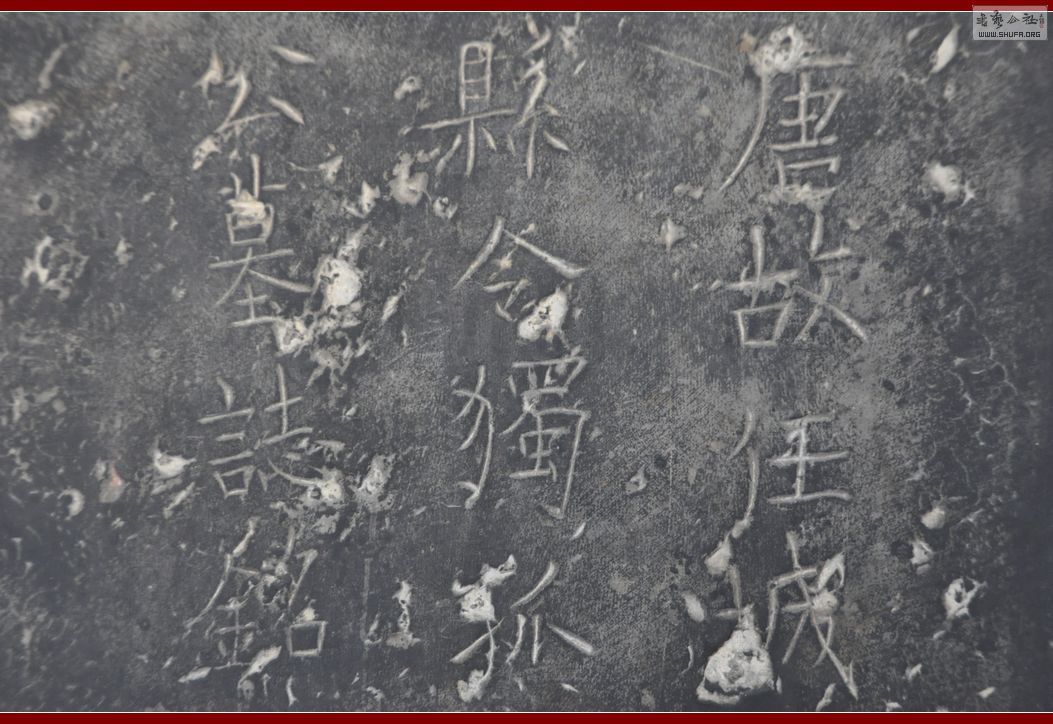 唐故任城
縣令獨孤
公墓誌銘
書藝公社
WWW.SHUFA.ORG